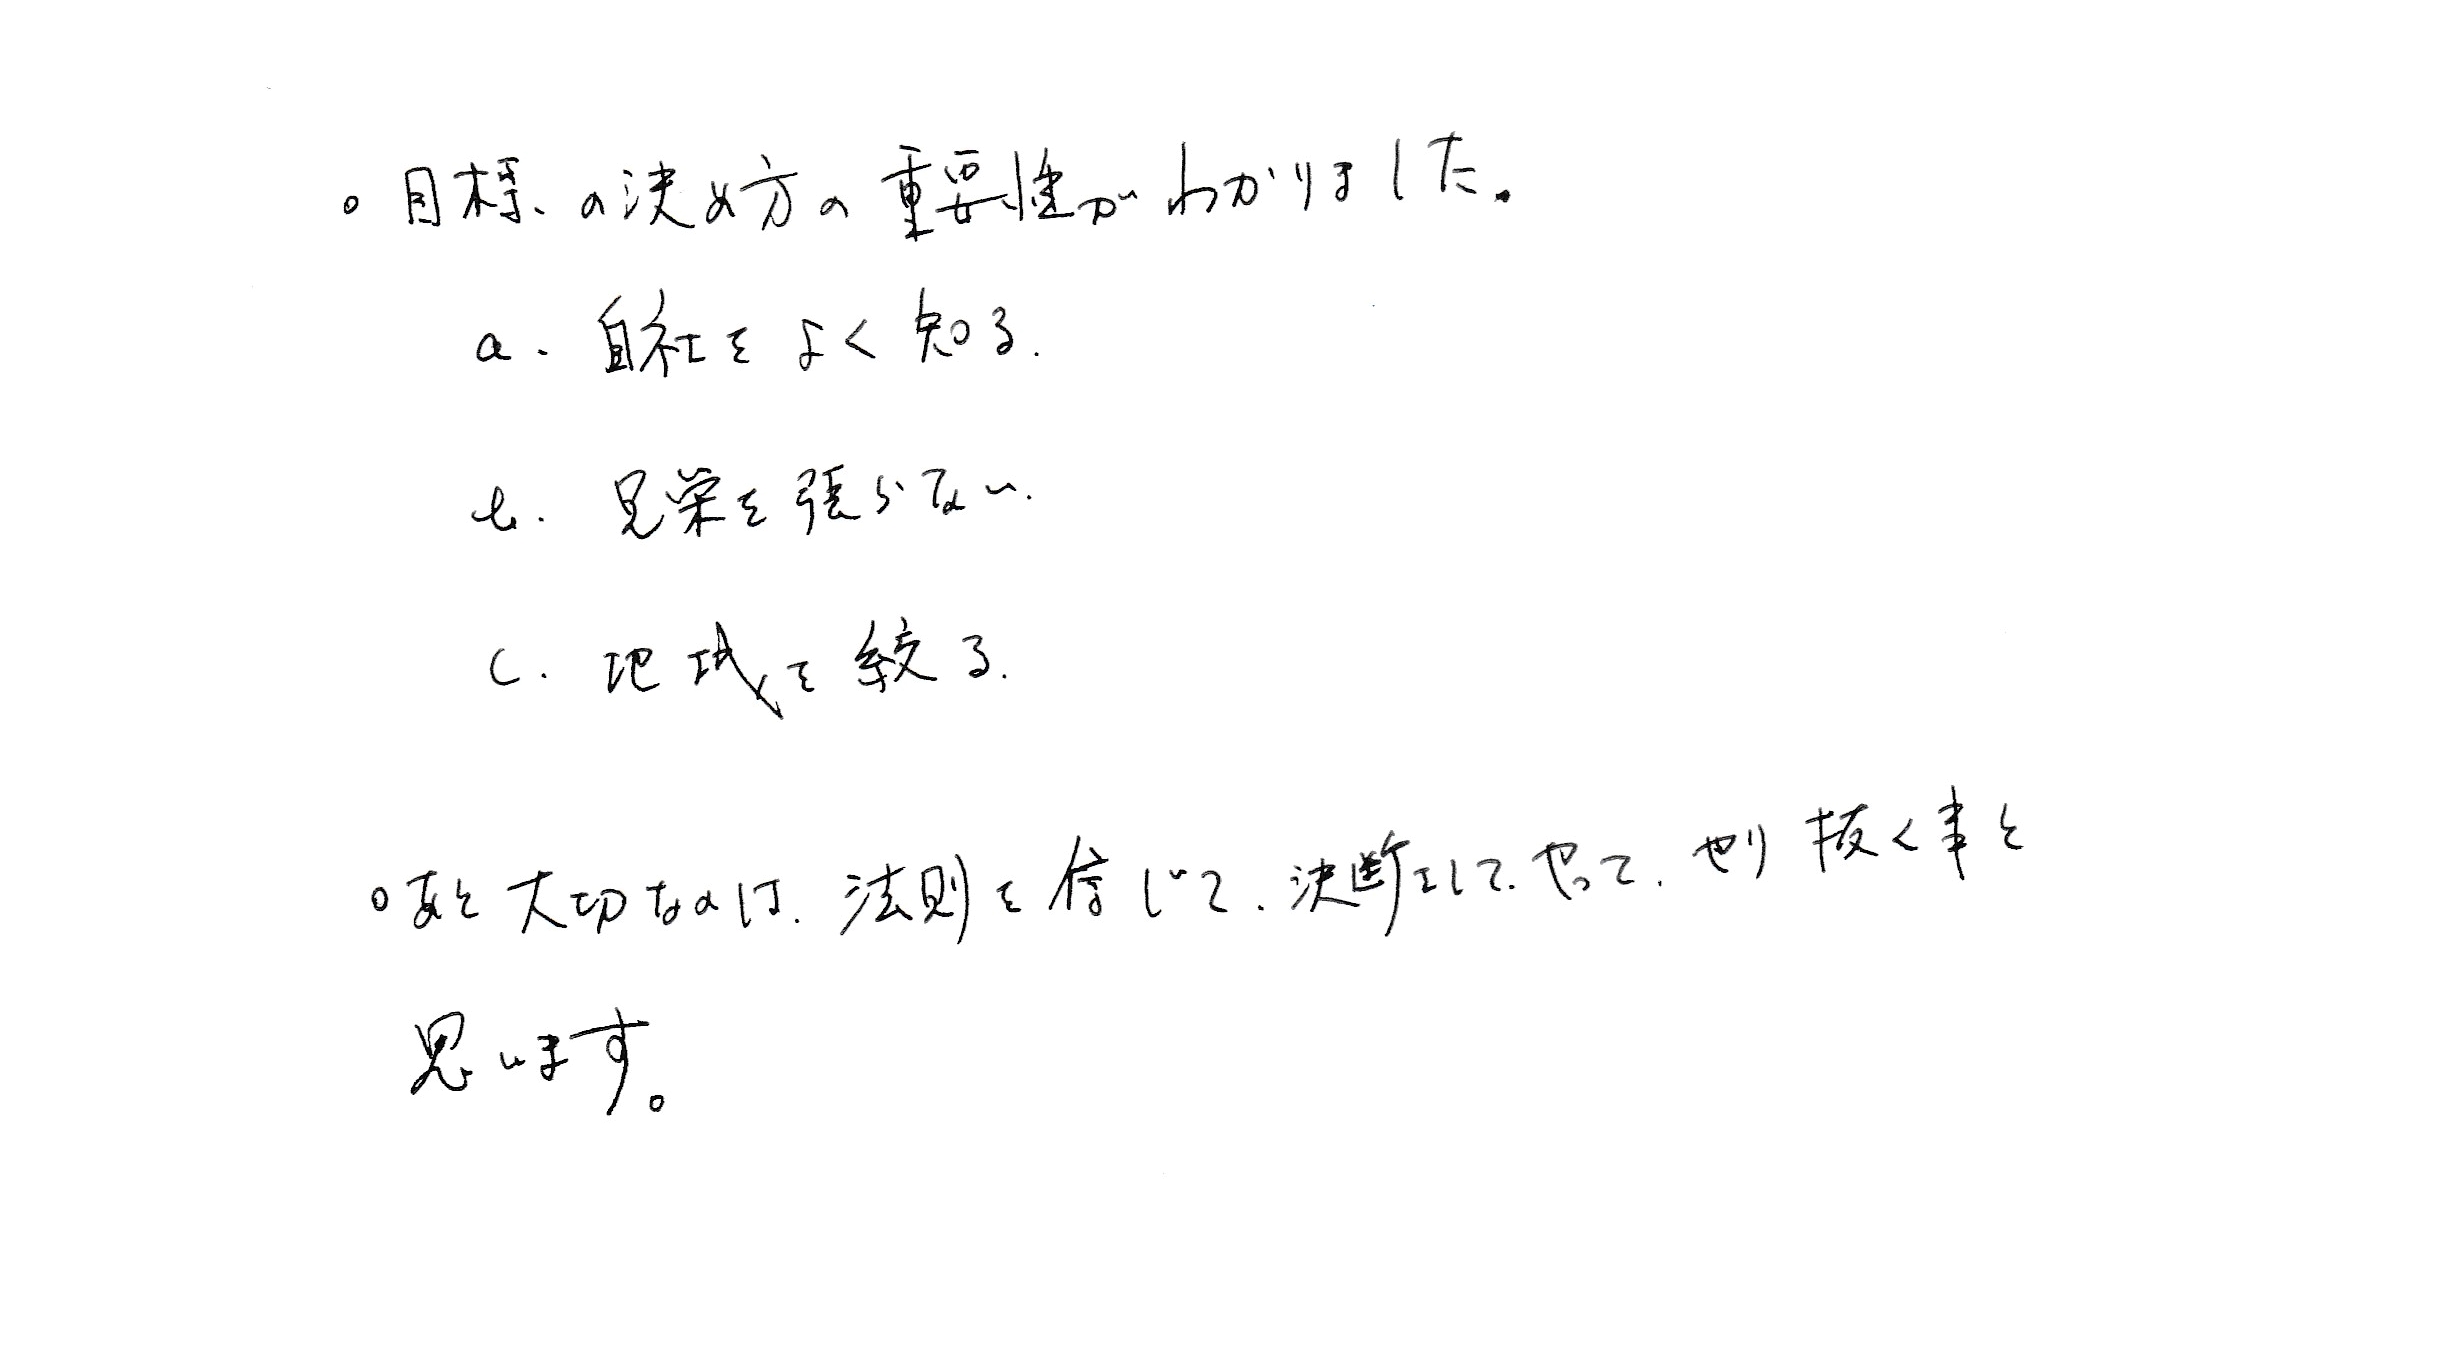 。目標の決め方の重要性がわかりました。
a. 自社をよく知る.
b. 見栄を張らない.
c. 地域を絞る.
○あと大切なのは、法則を信じて、決断をして、やって、やり抜く事と
思います。